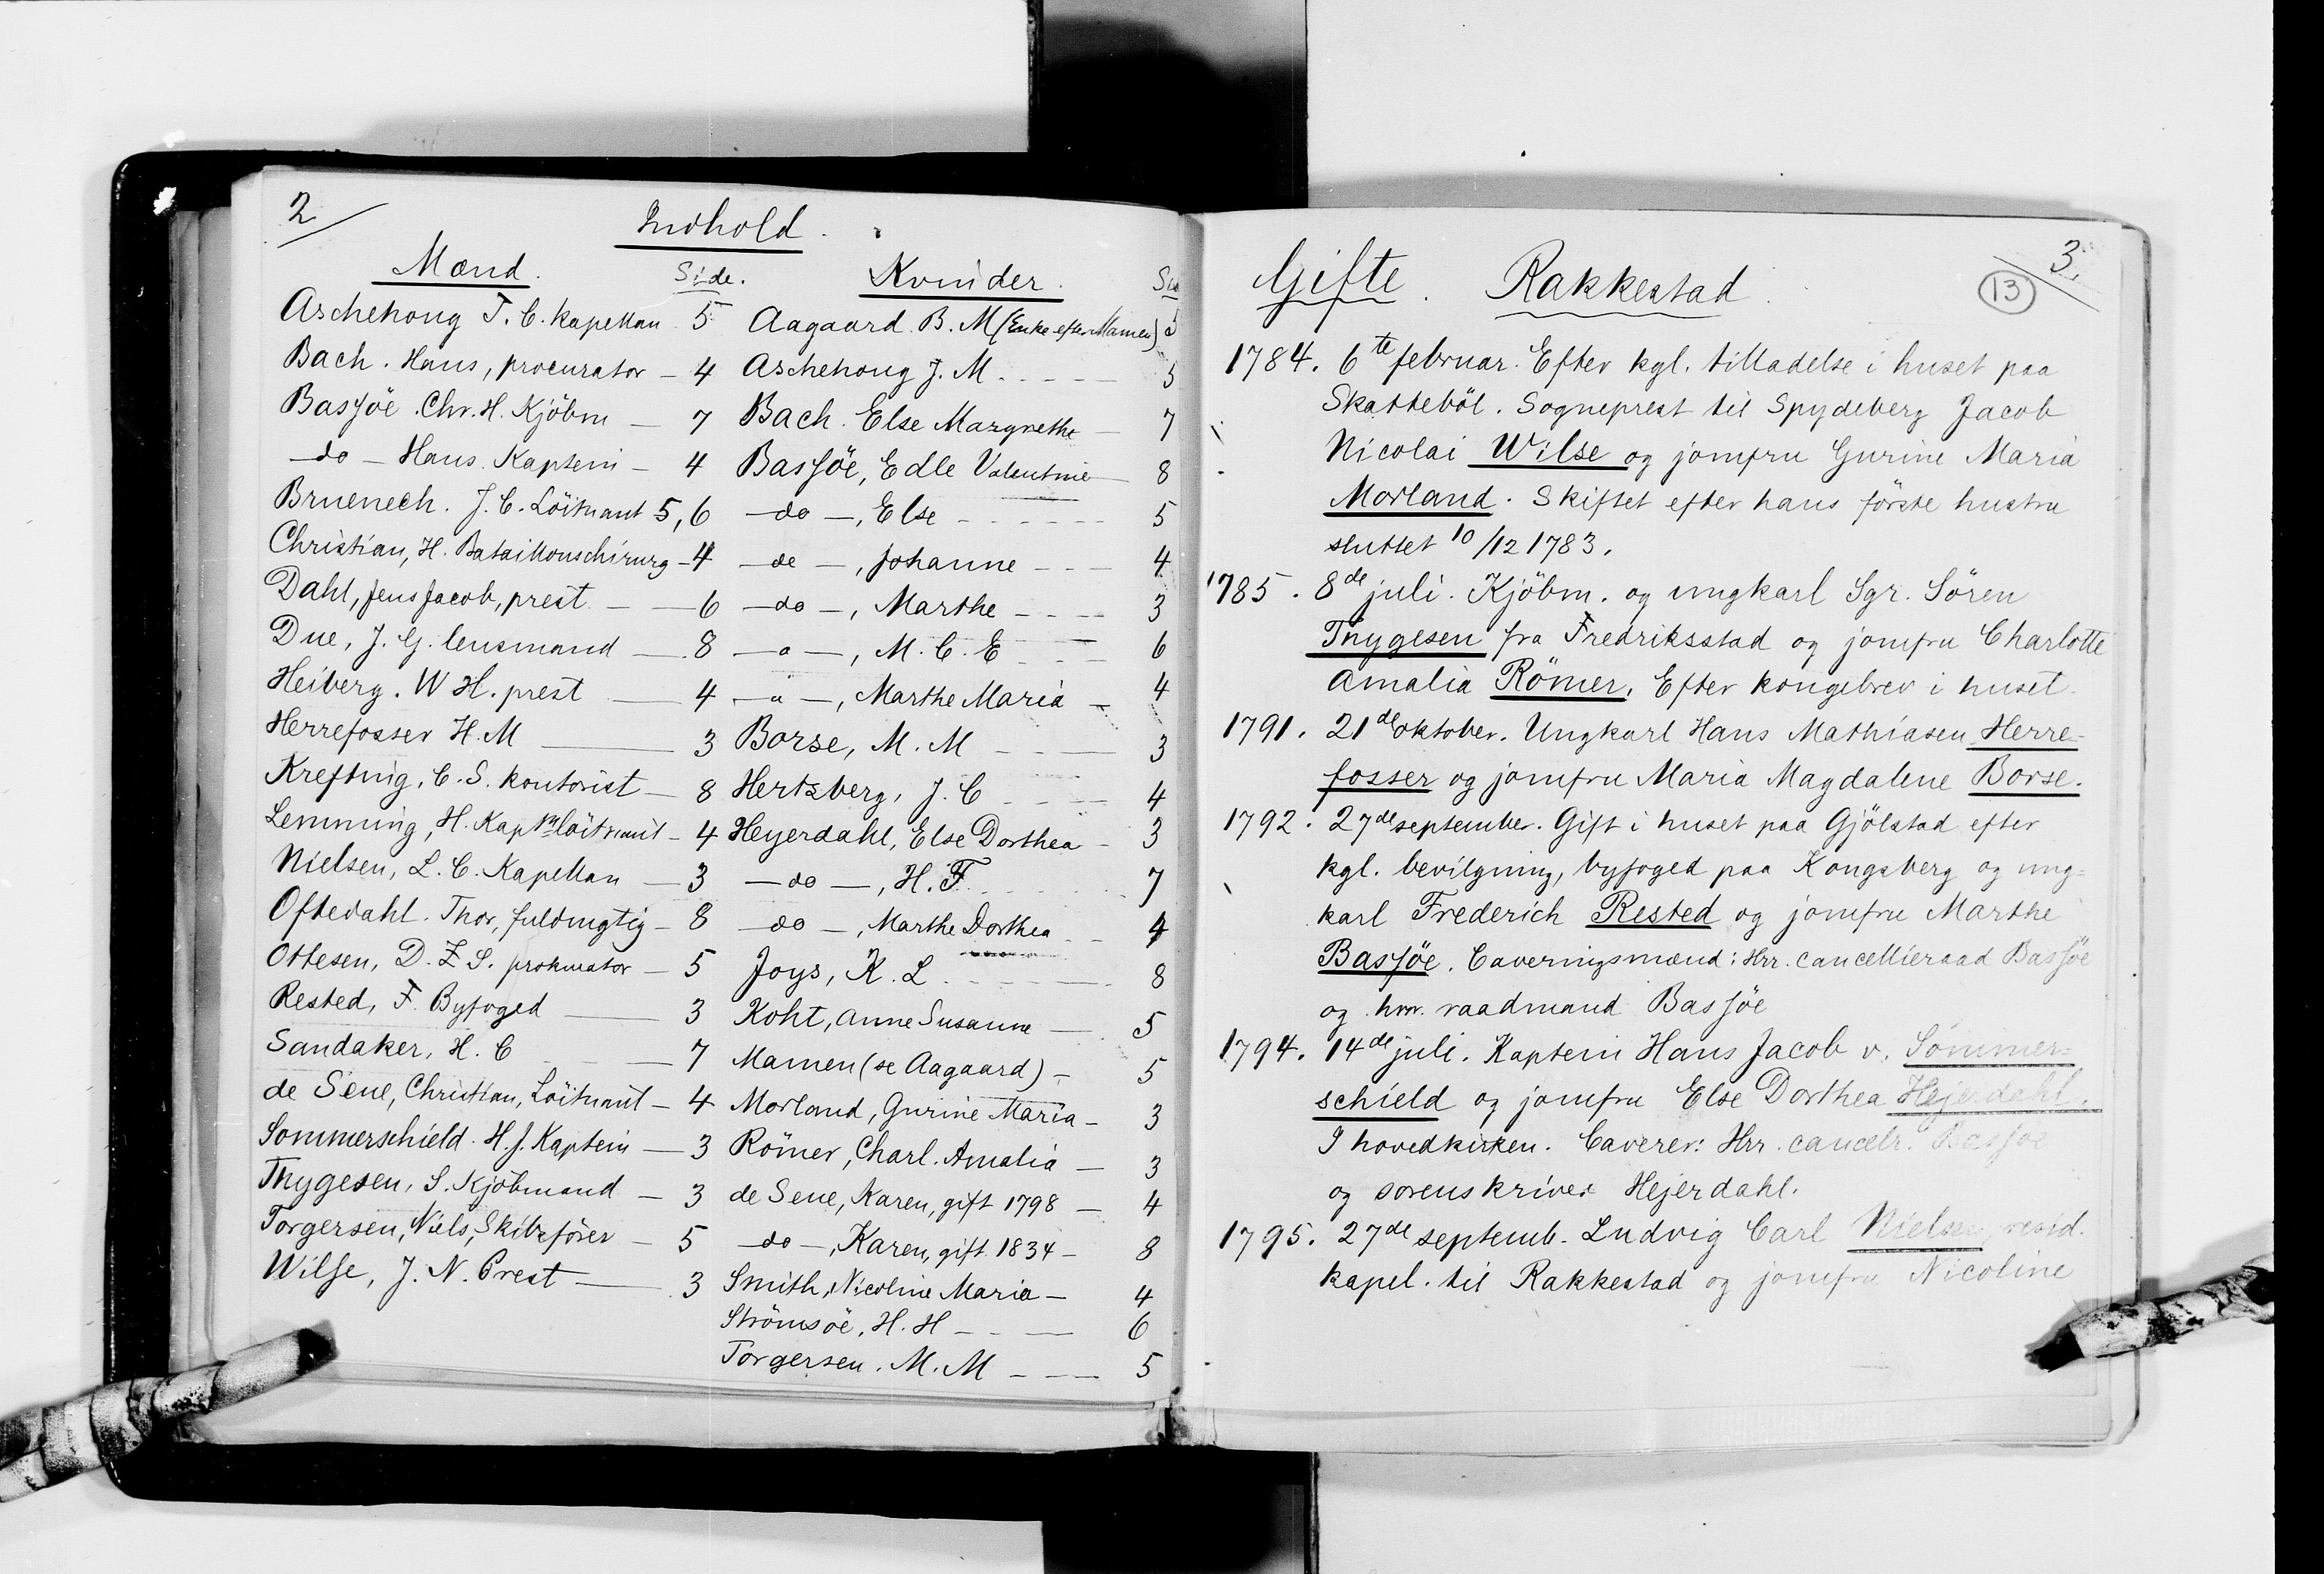 2
Indhold.
Mænd. Side. Kvinder.
Aschehoug T. C. kapellan 5 Aagaard. B. M (Enke efter Mamen) 5
Bach. Hans, procurator - 4 Aschehoug J. M. - - - - 5
Basføe. Chr. H. Kjöbm - 7 Bach. Else Margrethe - 7
- do - Hans. Kaptein - 4 Basføe, Edle Valentine - 8
Bruenech. J. C. Löitnant 5, 6 - do -, Else - - - - - 5
Christian, H. Bataillonschirurg - 4 - do -, Johanne - - - 4
Dahl, Jens Jacob, prest - - 6 - do -, Marthe - - - - 3
Due, J. G. lensmand - 8 - o -, M. C. E - - - 6
Heiberg. W H. prest - 4 - " -, Marthe Maria - 4
Herrefosser H. M - 3 Borse, M. M - - - 3
Krefting, C. S. kontorist - 8 Hertzberg, J. C - - - - 4
Lemming, H. Kaptnlöitnant - 4 Heyerdahl, Else Dorthea - 3
Nielsen, L. C. Kapellan - 3 - do -, H. F. - - - - 7
Oftedahl. Thor, fuldmgtig - 8 - do -, Marthe Dorthea - - 4
Ottesen, D. Z S. prokurator - 5 Joys, K. L - - - - - 8
Rested, F. Byfoged - 3 Koht, Anne Susanne - 5
Sandaker, H. C - - 7 Mamen (se Aagaard) - 5
de Seue, Christian, Löitnant - 4 Morland, Gurine Maria - 3
Sommerschield. H. J. Kaptein - 3 Römer, Charl. Amalia - 3
Thygesen, S. Kjöbmand - 3 de Seue, Karen, gift 1798 - 4
Torgersen, Niels, Skibsförer - 5 - do -, Karen, gift 1834 - 8
Wilse, J. N. Prest - 3 Smith, Nicoline Maria - 4
Strömsöe, H. H - - - 6
Torgersen. M. M - - - 5
3.
13
Gifte. Rakkestad.
1784. 6te februar. Efter kgl. tilladelse i huset paa
Skatteböl. Sogneprest til Spydeberg Jacob
Nicolai Wilse og jomfru Gurine Maria
Morland. Skiftet efter hans förste hustru
sluttet 10/12 1783.
1785. 8de juli. Kjöbm. og ungkarl Sgr. Sören
Thygesen fra Fredriksstad og jomfru Charlotte
Amalia Römer. Efter kongebrev i huset.
1791. 21de oktober. Ungkarl Hans Mathiasen Herre-
fosser og jomfru Maria Magdalene Borse.
1792. 27de september. Gift i huset paa Gjölstad efter
kgl. bevilgning, byfoged paa Kongsberg og ung=
karl Frederich Rested og jomfru Marthe
Basføe. Caveringsmænd: Hrr. cancellieraad Basføe
og hrr. raadmand Basføe
1794. 14de juli. Kaptein Hans Jacob v. Sommer=
schield og jomfru Else Dorthea Hejerdahl.
I hovedkirken. Caverer: Hrr. cancelr. Basføe
og sorenskriver Hejerdahl.
1795. 27de septemb. Ludvig Carl Nielsen resid.
kapel. til Rakkestad og jomfru Nicoline